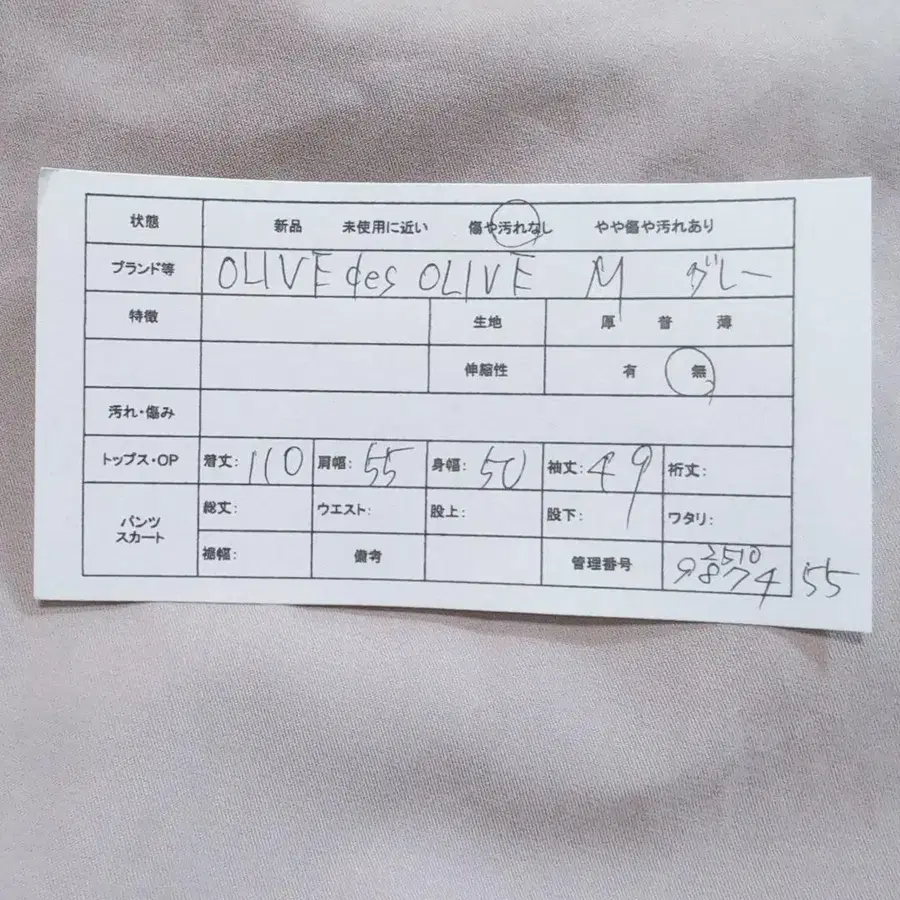 状態 新品 未使用に近い 傷や汚れなし やや傷や汚れあり
ブランド等 OLIVE des OLIVE M グレー
特徴 生地 厚 普 薄
伸縮性 有 無
汚れ・傷み
トップス・OP 着丈: 110 肩幅: 55 身幅: 50 袖丈: 49 裄丈:
パンツ スカート 総丈: ウエスト: 股上: 股下: ワタリ:
裾幅: 備考 管理番号 2510
9874 55